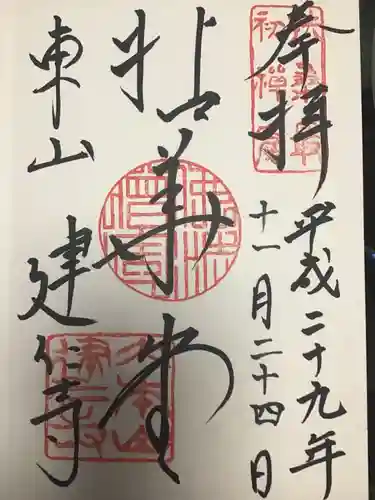 奉拝
平成二十九年
十一月二十四日
拈華堂
東山
建仁寺